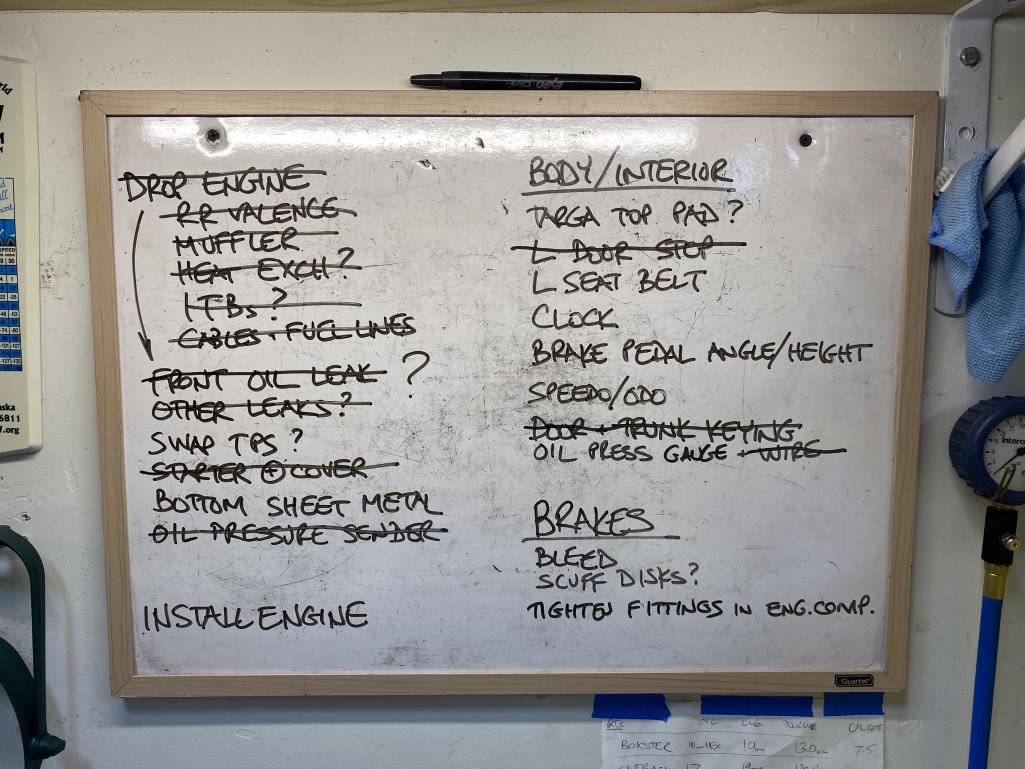 EXPO Click
DROP ENGINE
RR VALENCE
MUFFLER
HEAT EXCH?
ITBs?
CABLES + FUEL LINES
FRONT OIL LEAK ?
OTHER LEAKS?
SWAP TPS?
STARTER + COVER
BOTTOM SHEET METAL
OIL PRESSURE SENDER
INSTALL ENGINE
BODY/INTERIOR
TARGA TOP PAD?
L DOOR STOP
L SEAT BELT
CLOCK
BRAKE PEDAL ANGLE/HEIGHT
SPEEDO/ODO
DOOR + TRUNK KEYING
OIL PRESS GAUGE + WIRE
BRAKES
BLEED
SCUFF DISKS?
TIGHTEN FITTINGS IN ENG.COMP.
Quartet
OIL LUG
BOXSTER 10mmHEX 19mm 130nm 7.5
OUTBACK 17 19mm
SPEED
aska
6811
.org
Interc